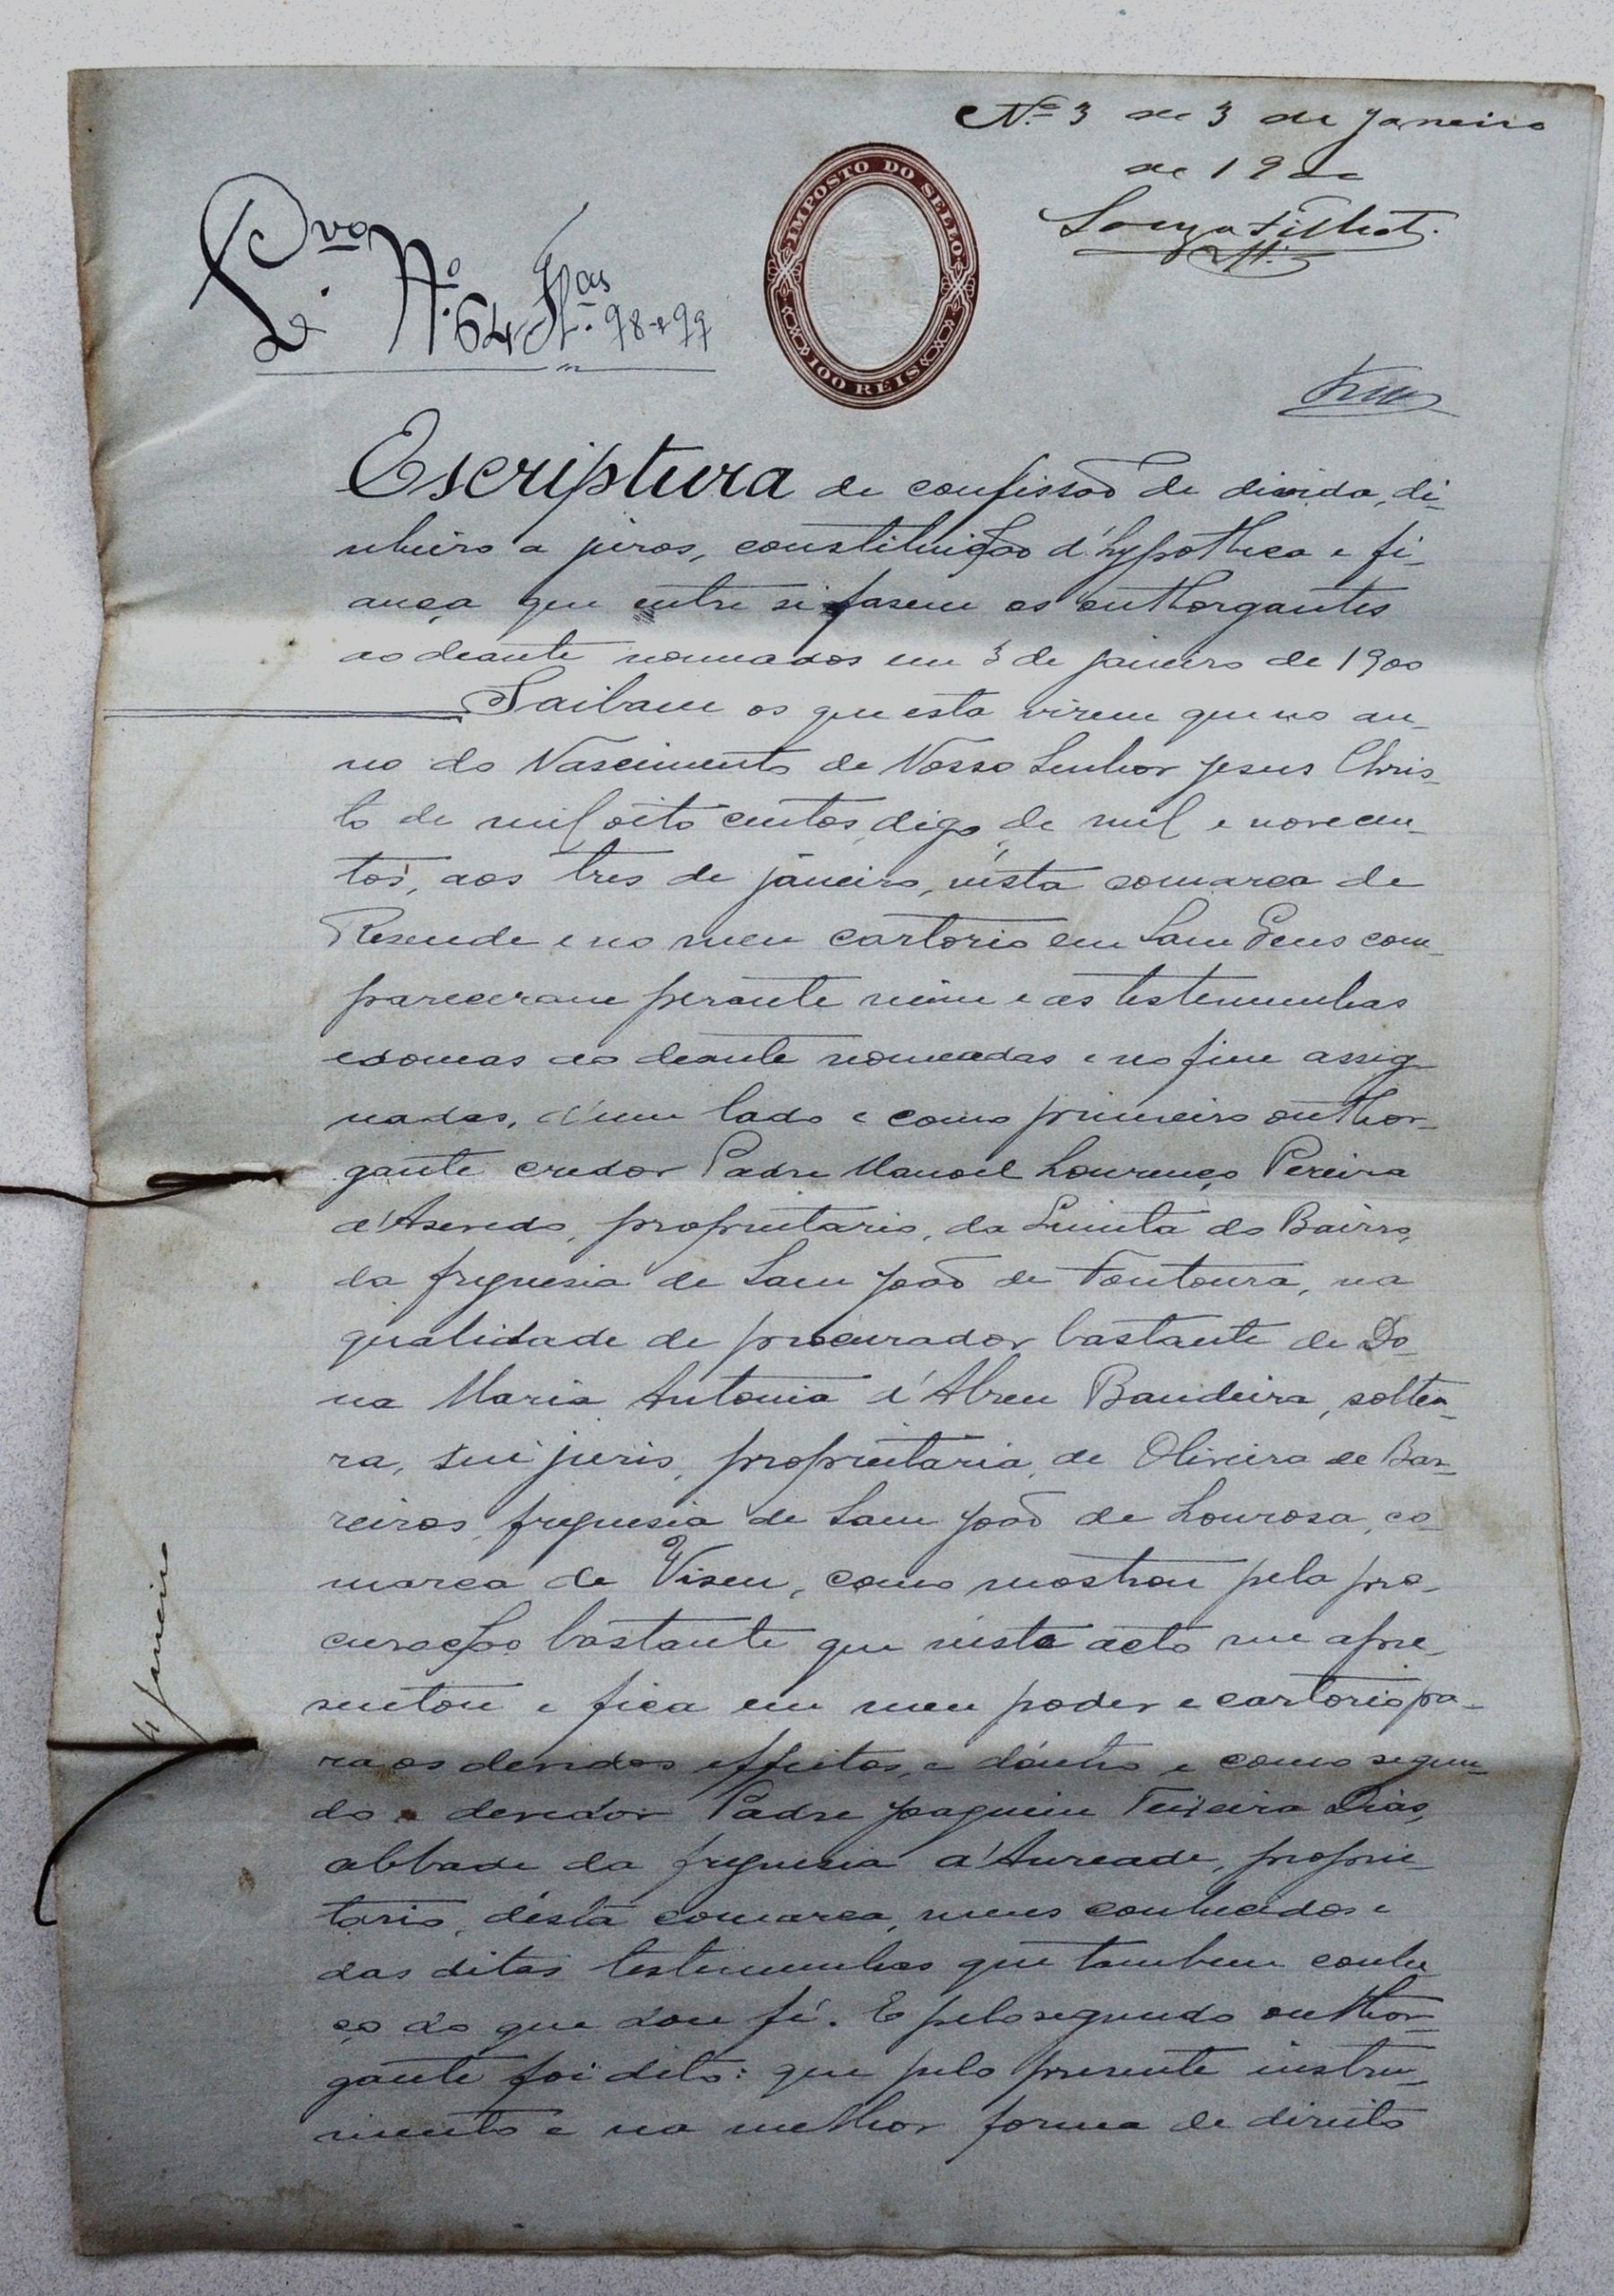 Nº 3 de 3 de Janeiro
de 1900
Lº Nº 64 Flas 98 e 99
IMPOSTO DO SELLO
100 REIS
Escriptura de confissão de divida, di-
nheiro a juros, constituição d'hypotheca e fi-
ança que entre si fasem os outhorgantes
ao deante nomeados em 3 de janeiro de 1900
Saibam os que esta virem que no an-
no do Nascimento de Nosso Senhor Jesus Chris-
to de mil oito centos, digo, de mil e novecen-
tos, aos tres de janeiro, nésta comarca de
Resende e no meu cartorio em Sam Gens com-
pareceram perante mim e as testemunhas
idoneas ao deante nomeadas e no fim assig-
nadas, d'um lado e como primeiro outhor-
gante credor Padre Manoel Lourenço Pereira
d'Asevedo, proprietario, da Quinta do Bairro,
da freguesia de Sam João de Fontoura, na
qualidade de procurador bastante de Do-
na Maria Antonia d'Abreu Bandeira, soltei-
ra, sui juris, proprietaria, de Oliveira de Bar-
reiros, freguesia de Sam João de Lourosa, co-
marca de Viseu, como mostrou pela pro-
curação bastante que nésta acto me apre-
sentou e fica em meu poder e cartorio pa-
ra os devidos effeitos, e d'outro e como segun-
do e devedor Padre Joaquim Teixeira Dias,
abbade da freguesia d'Anreade, proprie-
tario, désta comarca, meus conhecidos e
das ditas testemunhas que tambem conhe
ço do que dou fé. E pelo segundo outhor-
gante foi dito: que pelo presente instru-
mento e na melhor forma de direito
4 Janeiro